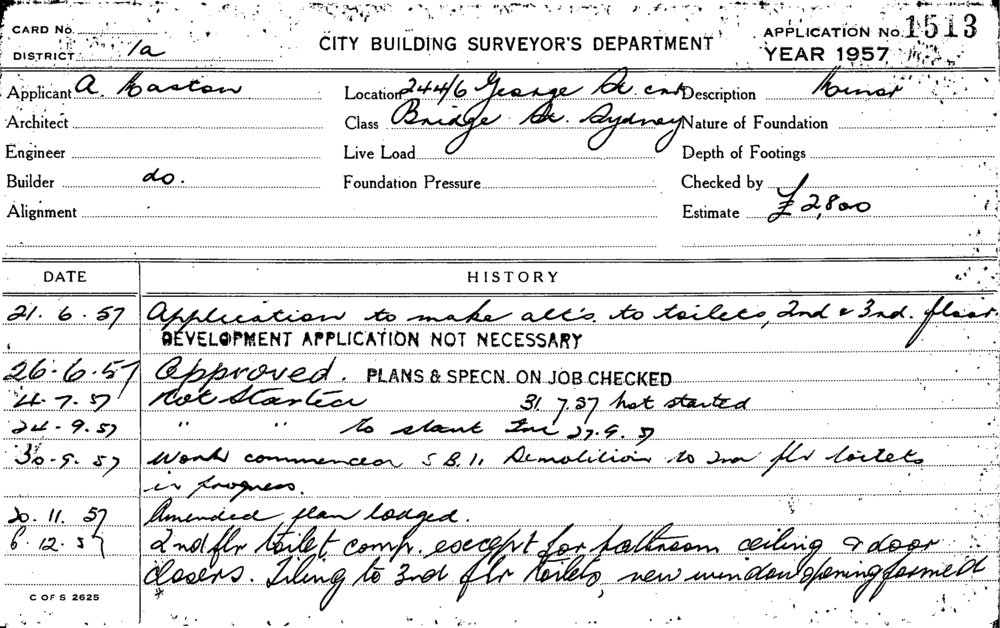 CARD No.
DISTRICT 1a
CITY BUILDING SURVEYOR'S DEPARTMENT
APPLICATION No. 1513
YEAR 1957
Applicant A. Easton
Location 244/6 George St. cnr
Description Minor
Architect
Class Bridge St. Sydney
Nature of Foundation
Engineer
Live Load
Depth of Footings
Builder do.
Foundation Pressure
Checked by
Alignment
Estimate £2,800
DATE HISTORY
21. 6. 57 Application to make alt's. to toilets, 2nd & 3rd. floor.
DEVELOPMENT APPLICATION NOT NECESSARY
26. 6. 57 Approved. PLANS & SPECN. ON JOB CHECKED
4. 7. 57 Not Started 31 7. 57 not started
24. 9. 57 " " To start 27. 9. 57
30. 9. 57 Work commenced S B.11 Demolition to 2nd flr toilets
in progress.
20. 11. 57 Amended plan lodged.
6. 12. 57 2nd flr toilet comp. except for bathroom ceiling & door
closers. Tiling to 3rd flr toilets, new window opening formed
C OF S 2625
*